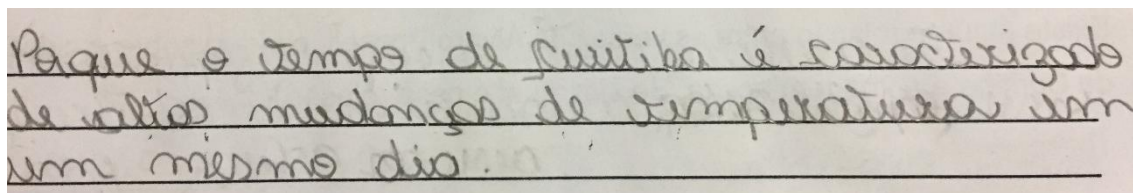 Paque o tempo de Cuitiba é caracterizado
de altas mudanças de temperatura em
um mesmo dia.